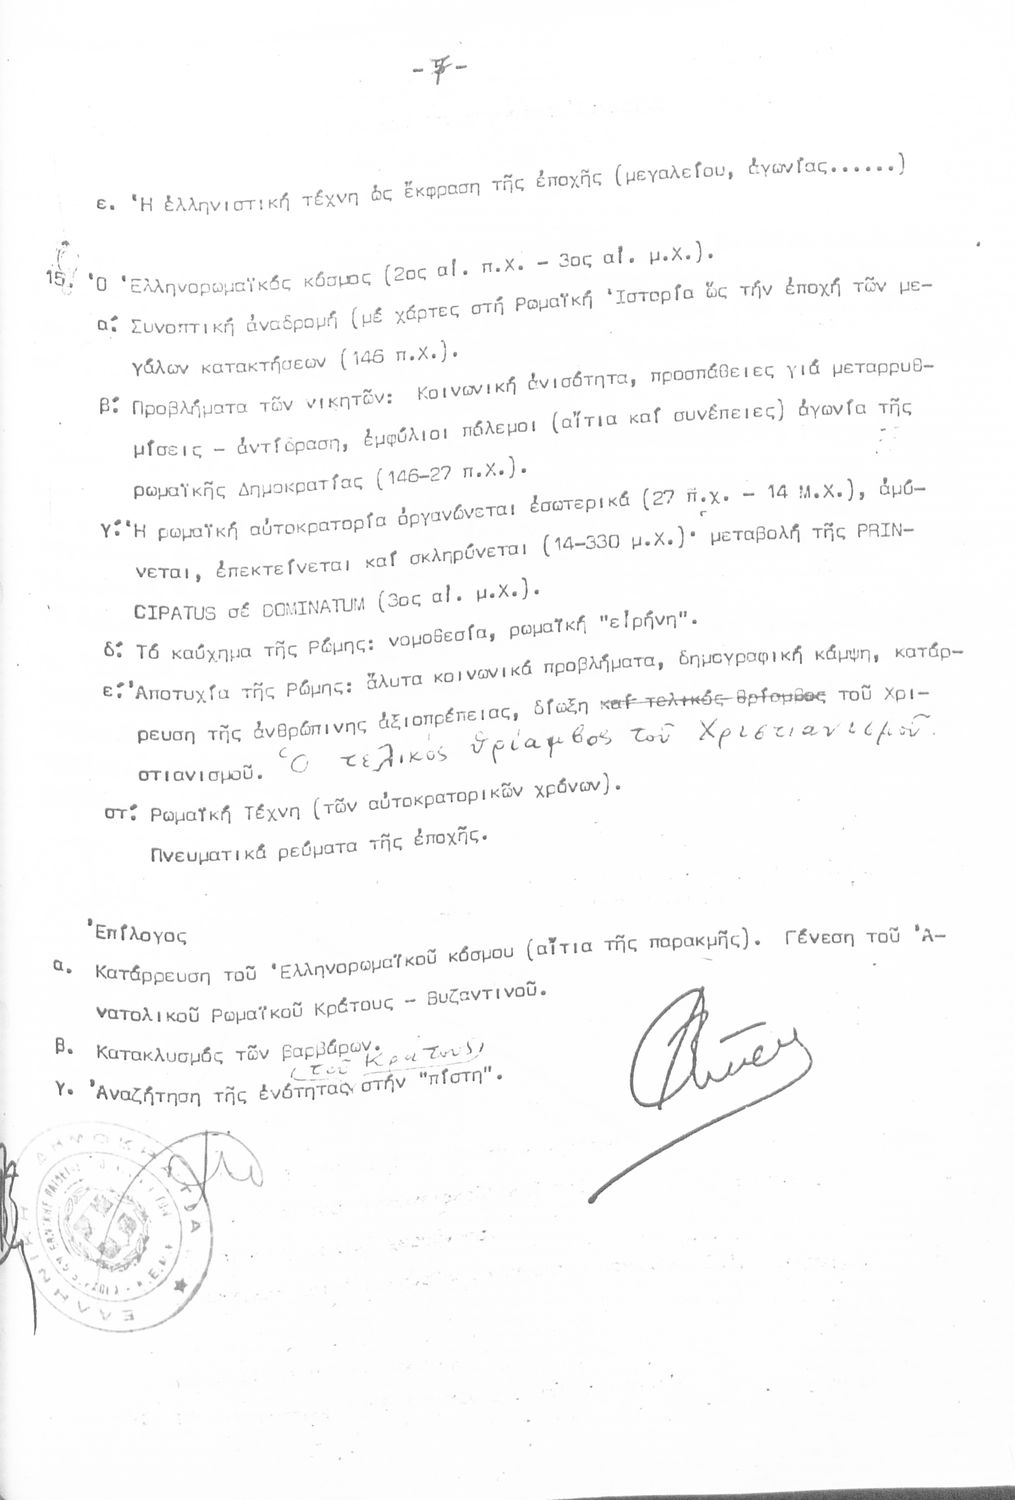 ε. Ἡ ἑλληνιστική τέχνη ὡς ἔκφραση τῆς ἐποχῆς (μεγαλείου, ἀγωνίας......)
15. Ὁ Ἑλληνορωμαϊκός κόσμος (2ος αἰ. π.Χ. - 3ος αἰ. μ.Χ.).
α: Συνοπτική ἀναδρομή (μέ χάρτες στή Ρωμαϊκή Ἱστορία ὥς τήν ἐποχή τῶν με-
γάλων κατακτήσεων (146 π.Χ.).
β: Προβλήματα τῶν νικητῶν: Κοινωνική ἀνισότητα, προσπάθειες γιά μεταρρυθ-
μίσεις - ἀντίδραση, ἐμφύλιοι πόλεμοι (αἴτια καί συνέπειες) ἀγωνία τῆς
ρωμαϊκῆς Δημοκρατίας (146-27 π.Χ.).
γ: Ἡ ρωμαϊκή αὐτοκρατορία ὀργανώνεται ἐσωτερικά (27 π.χ. - 14 Μ.Χ.), ἀμύ-
νεται, ἐπεκτείνεται καί σκληρύνεται (14-330 μ.Χ.)· μεταβολή τῆς PRIN-
CIPATUS σέ DOMINATUM (3ος αἰ. μ.Χ.).
δ: Τό καύχημα τῆς Ρώμης: νομοθεσία, ρωμαϊκή "εἰρήνη".
ε: Ἀποτυχία τῆς Ρώμης: ἄλυτα κοινωνικά προβλήματα, δημογραφική κάμψη, κατάρ-
ρευση τῆς ἀνθρώπινης ἀξιοπρέπειας, δίωξη καί τελικός θρίαμβος τοῦ Χρι-
στιανισμοῦ. Ὁ τελικός θρίαμβος τοῦ Χριστιανισμοῦ.
στ: Ρωμαϊκή Τέχνη (τῶν αὐτοκρατορικῶν χρόνων).
Πνευματικά ρεύματα τῆς ἐποχῆς.
Ἐπίλογος
α. Κατάρρευση τοῦ Ἑλληνορωμαϊκοῦ κόσμου (αἴτια τῆς παρακμῆς). Γένεση τοῦ Ἀ-
νατολικοῦ Ρωμαϊκοῦ Κράτους - Βυζαντινοῦ.
β. Κατακλυσμός τῶν βαρβάρων.
(τοῦ Κράτους)
γ. Ἀναζήτηση τῆς ἑνότητας στήν "πίστη".
ΕΛΛΗΝΙΚΗ ΔΗΜΟΚΡΑΤΙΑ